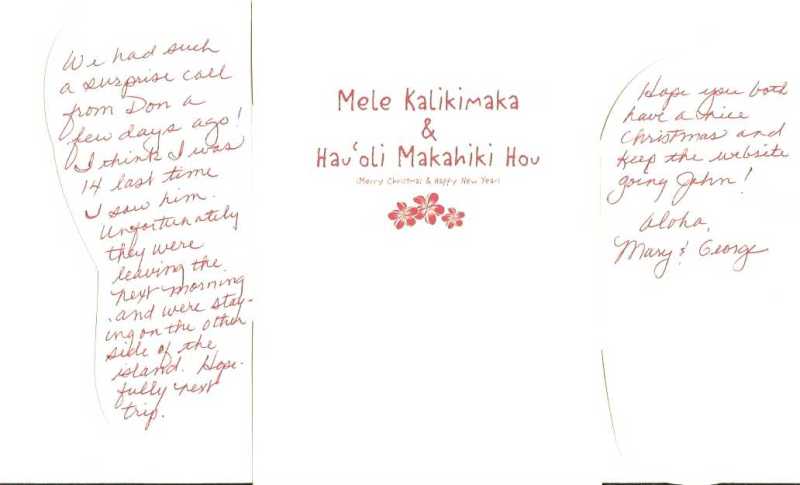 We had such
a surprise call
from Don a
few days ago!
I think I was
14 last time
I saw him.
Unfortunately
they were
leaving the
next morning
and were stay-
ing on the other
side of the
island. Hope-
fully next
trip.
Mele Kalikimaka
&
Hauʻoli Makahiki Hou
(Merry Christmas & Happy New Year)
Hope you both
have a nice
Christmas and
keep the website
going John!
Aloha,
Mary & George